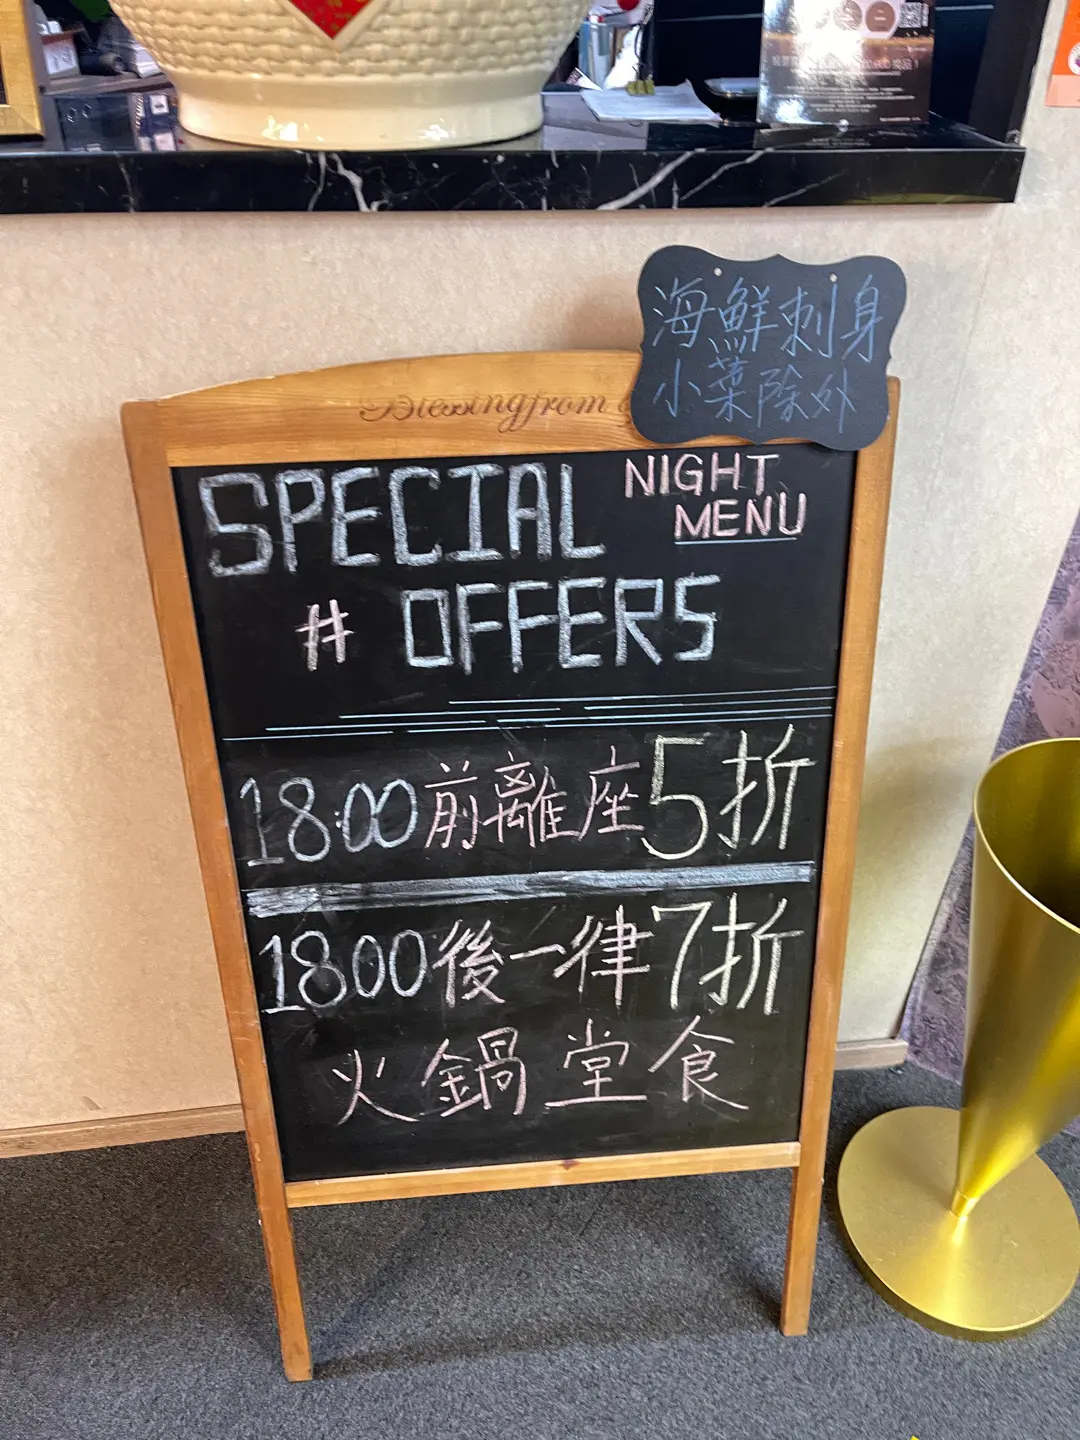 海鮮刺身
小菜除外
Blessing from
SPECIAL
NIGHT
MENU
# OFFERS
18:00前離座5折
18:00後一律7折
火鍋堂食